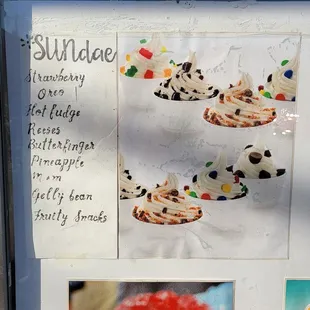 *Sundae
Strawberry
Oreo
Hot fudge
Reeses
Butterfinger
Pineapple
m m
Jelly bean
Fruity Snacks